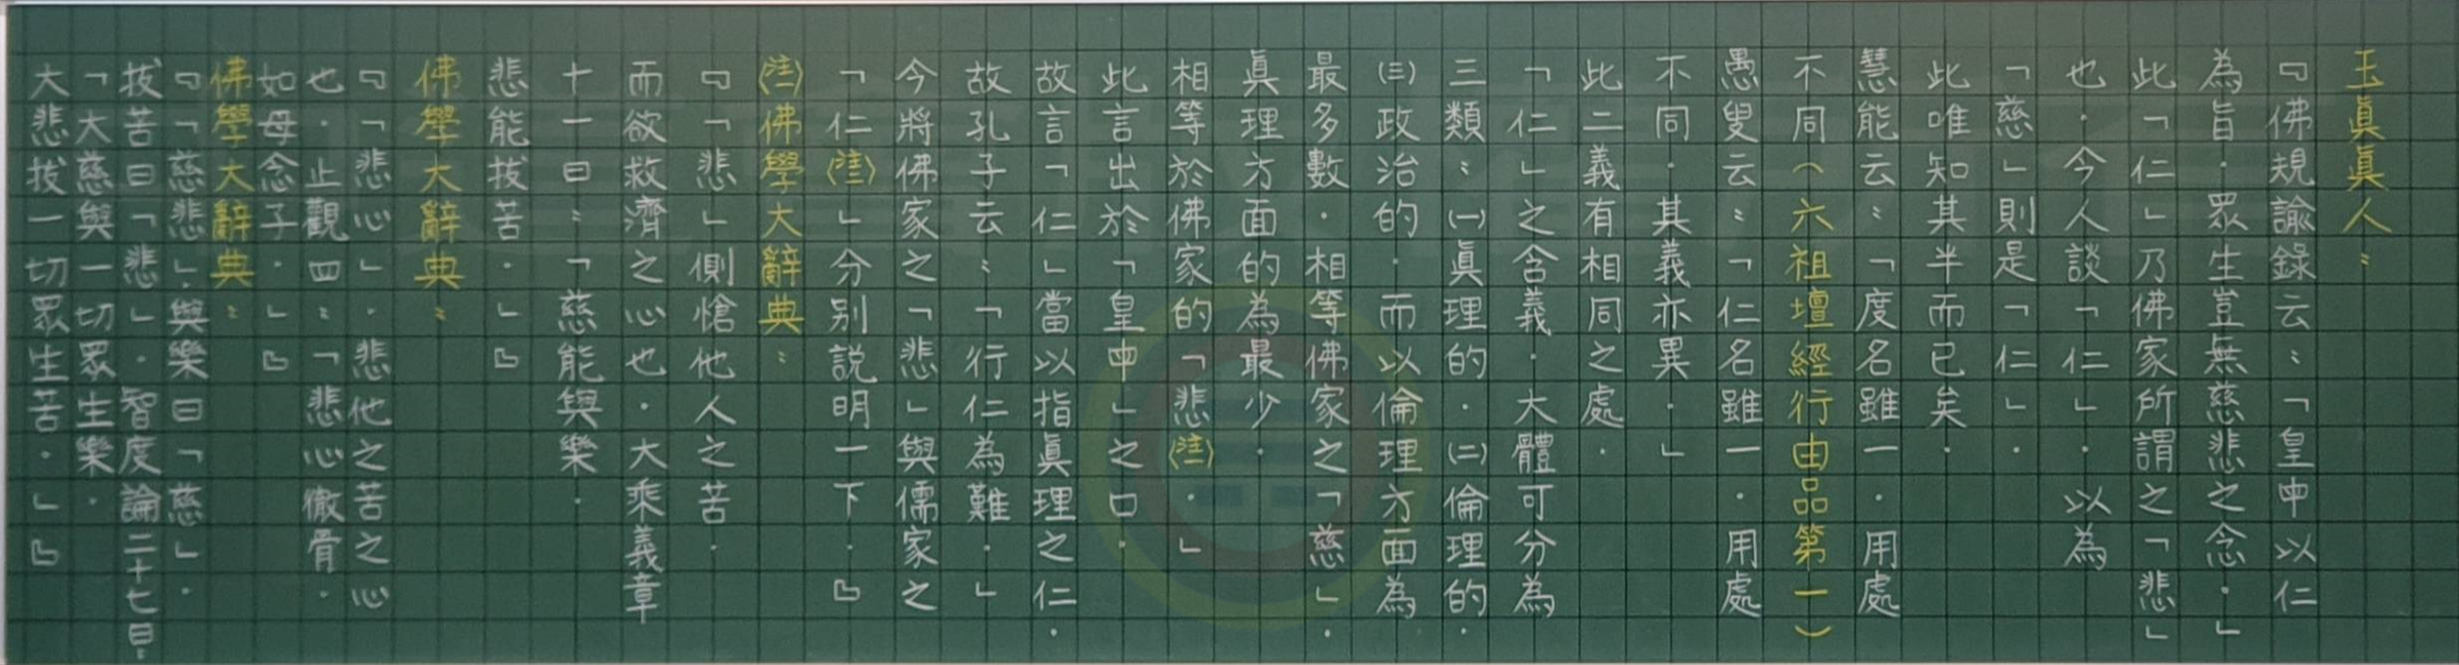 玉眞眞人：
『佛規諭錄云：「皇申以仁
為旨．眾生豈無慈悲之念．」
此「仁」乃佛家所謂之「悲」
也．今人談「仁」．以為
「慈」則是「仁」．
此唯知其半而已矣．
慧能云：「度名雖一．用處
不同（六祖壇經行由品第一）
愚叟云：「仁名雖一．用處
不同．其義亦異．」
此二義有相同之處．
「仁」之含義．大體可分為
三類：㈠眞理的．㈡倫理的．
㈢政治的．而以倫理方面為
最多數．相等佛家之「慈」．
眞理方面的為最少．
相等於佛家的「悲㊟．」
此言出於「皇申」之口．
故言「仁」當以指眞理之仁．
故孔子云：「行仁為難．」
今將佛家之「悲」與儒家之
「仁(注)」分別說明一下．』
(注)佛學大辭典：
『「悲」側愴他人之苦．
而欲救濟之心也．大乘義章
十一曰：「慈能與樂．
悲能拔苦．」』
佛學大辭典：
『「悲心」．悲他之苦之心
也．止觀四：「悲心徹骨．
如母念子．」』
佛學大辭典：
『「慈悲」．與樂曰「慈」．
拔苦曰「悲」．智度論二十七曰：
「大慈與一切眾生樂．
大悲拔一切眾生苦．」』